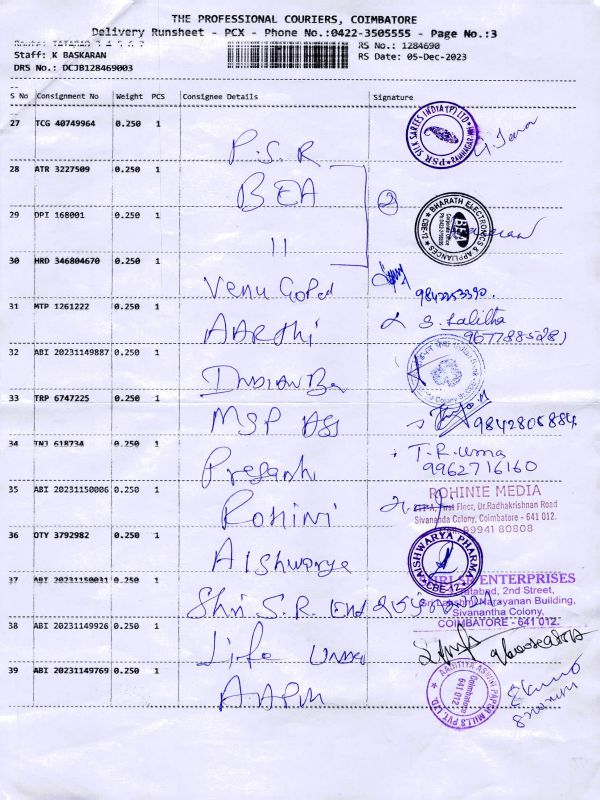 THE PROFESSIONAL COURIERS, COIMBATORE
Delivery Runsheet - PCX - Phone No.:0422-3505555 - Page No.:3
Staff: K BASKARAN
DRS No.: DCJB128469003
RS No.: 1284690
RS Date: 05-Dec-2023
S No Consignment No Weight PCS Consignee Details Signature
27 TCG 40749964 0.250 1 P.S.R
PSR SILK SAREES INDIA (P) LTD
28 ATR 3227509 0.250 1 BEA 2
29 DPI 168001 0.250 1 11
BHARATH ELECTRONICS & APPLIANCES
CBE-12
30 HRD 346804670 0.250 1 Venu Gopal
31 MTP 1261222 0.250 1 AARthi S. Lalitha
9677885281
32 ABI 20231149887 0.250 1
33 TRP 6747225 0.250 1 MSP 9842806884
34 TNJ 618734 0.250 1 T.R.uma
9962716160
35 ABI 20231150006 0.250 1 Rohini
ROHINIE MEDIA
First Floor, Dr.Radhakrishnan Road
Sivananda Colony, Coimbatore - 641 012.
99941 80808
36 OTY 3792982 0.250 1 AIshwarya
AISHWARYA PHARMA
CBE-12
37 ABI 20231150031 0.250 1 Shri S.R.
ENTERPRISES
Tatabad, 2nd Street,
Sri Lakshmi Narayanan Building,
Sivanantha Colony,
COIMBATORE - 641 012.
38 ABI 20231149926 0.250 1 Life
39 ABI 20231149769 0.250 1 AAPM
AADITYA ASWIN PAPER MILLS PVT LTD.
Coimbatore
641 012